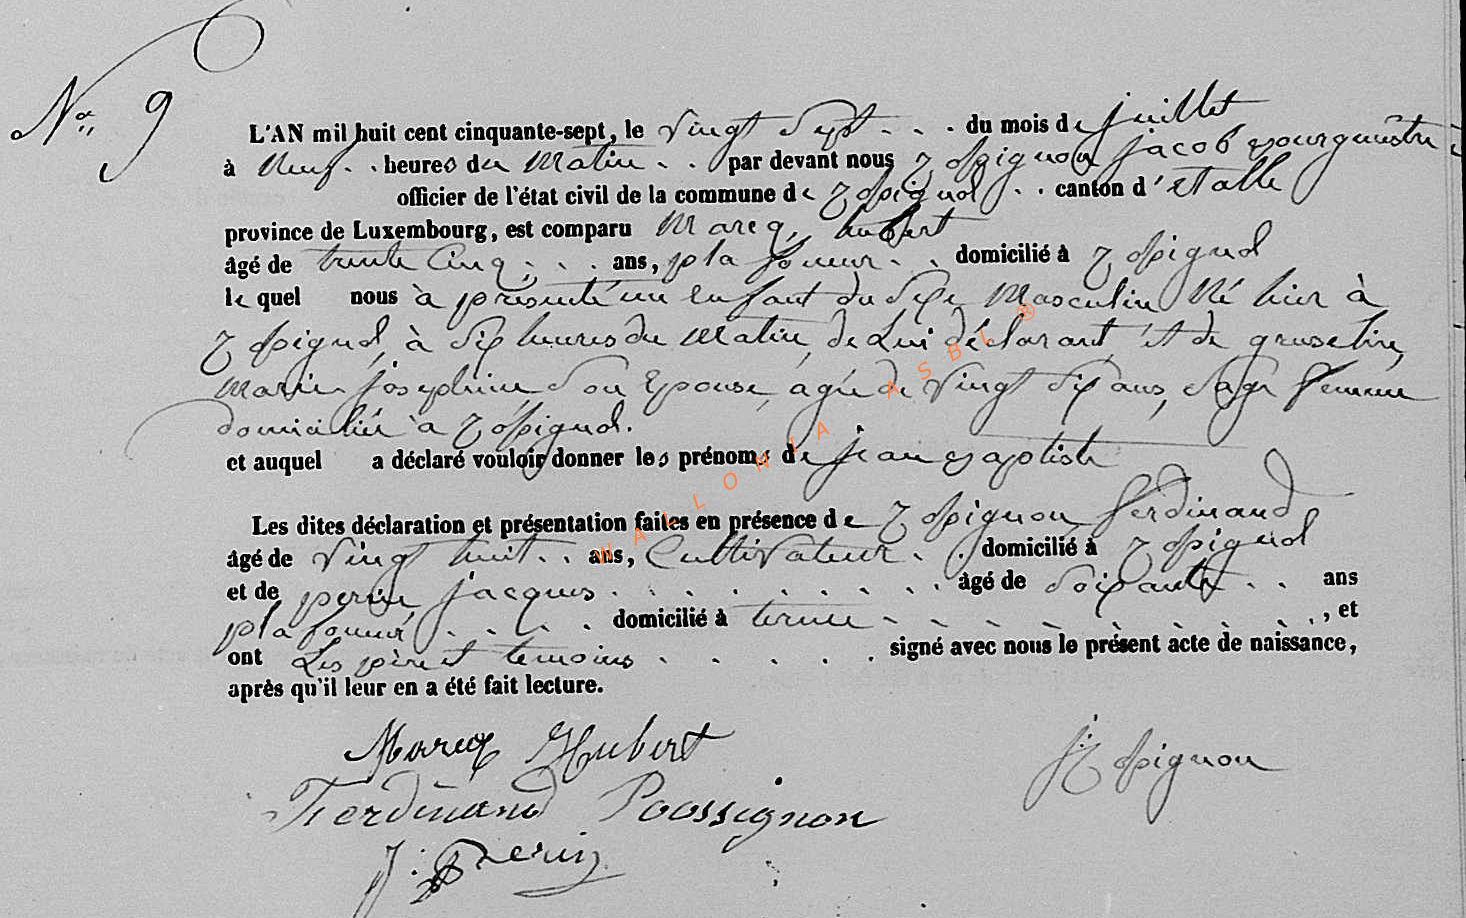 No 9
L'AN mil huit cent cinquante-sept, le vingt Sept du mois de juillet
à neuf heures du matin par devant nous Rossignon jacob bourgmestre
officier de l'état civil de la commune de Rossignol canton d'Etalle
province de Luxembourg, est comparu Marcq, hubert
âgé de trente Cinq ans, plafoneur domicilié à Rossignol
le quel nous à présenté un Enfant du Sexe Masculin Né hier à
Rossignol, à Six heures du matin, de Lui déclarant, Et de
Marie joséphine Son Epouse, agée de Vingt Six ans, Sage femme
domiciliée à Rossignol.
et auquel a déclaré vouloir donner les prénoms de jean baptiste
Les dites déclaration et présentation faites en présence de Rossignon ferdinand
âgé de Vingt huit ans, Cultivateur domicilié à Rossignol
et de perin jacques âgé de Soixante ans
plafoneur domicilié à termes, et
ont Les père et temoins signé avec nous le présent acte de naissance,
après qu'il leur en a été fait lecture.
Marcq Hubert
J Rossignon
Ferdinand Roossignon
J. Perin
WALLONIA ASBL ®